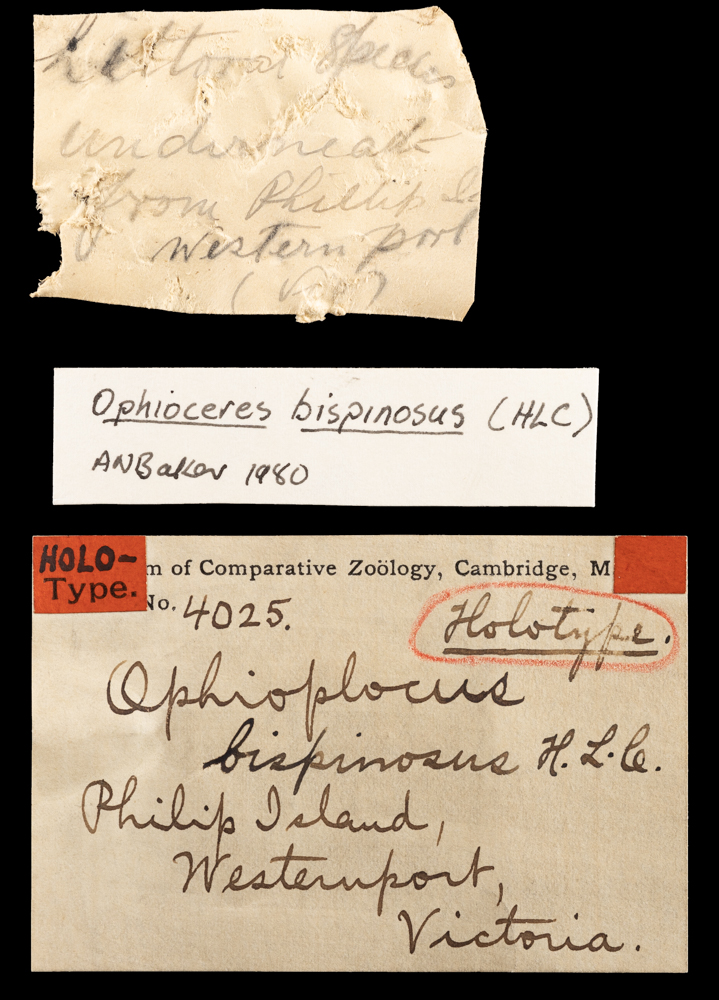 Littoral Species
underneath
from Phillip Is
Western port
(Vic)
Ophioceres bispinosus (HLC)
ANBaker 1980
HOLO-
Type.
m of Comparative Zoölogy, Cambridge, M
No. 4025.
Holotype.
Ophioplocus
bispinosus H. L. C.
Philip Island,
Westernport,
Victoria.